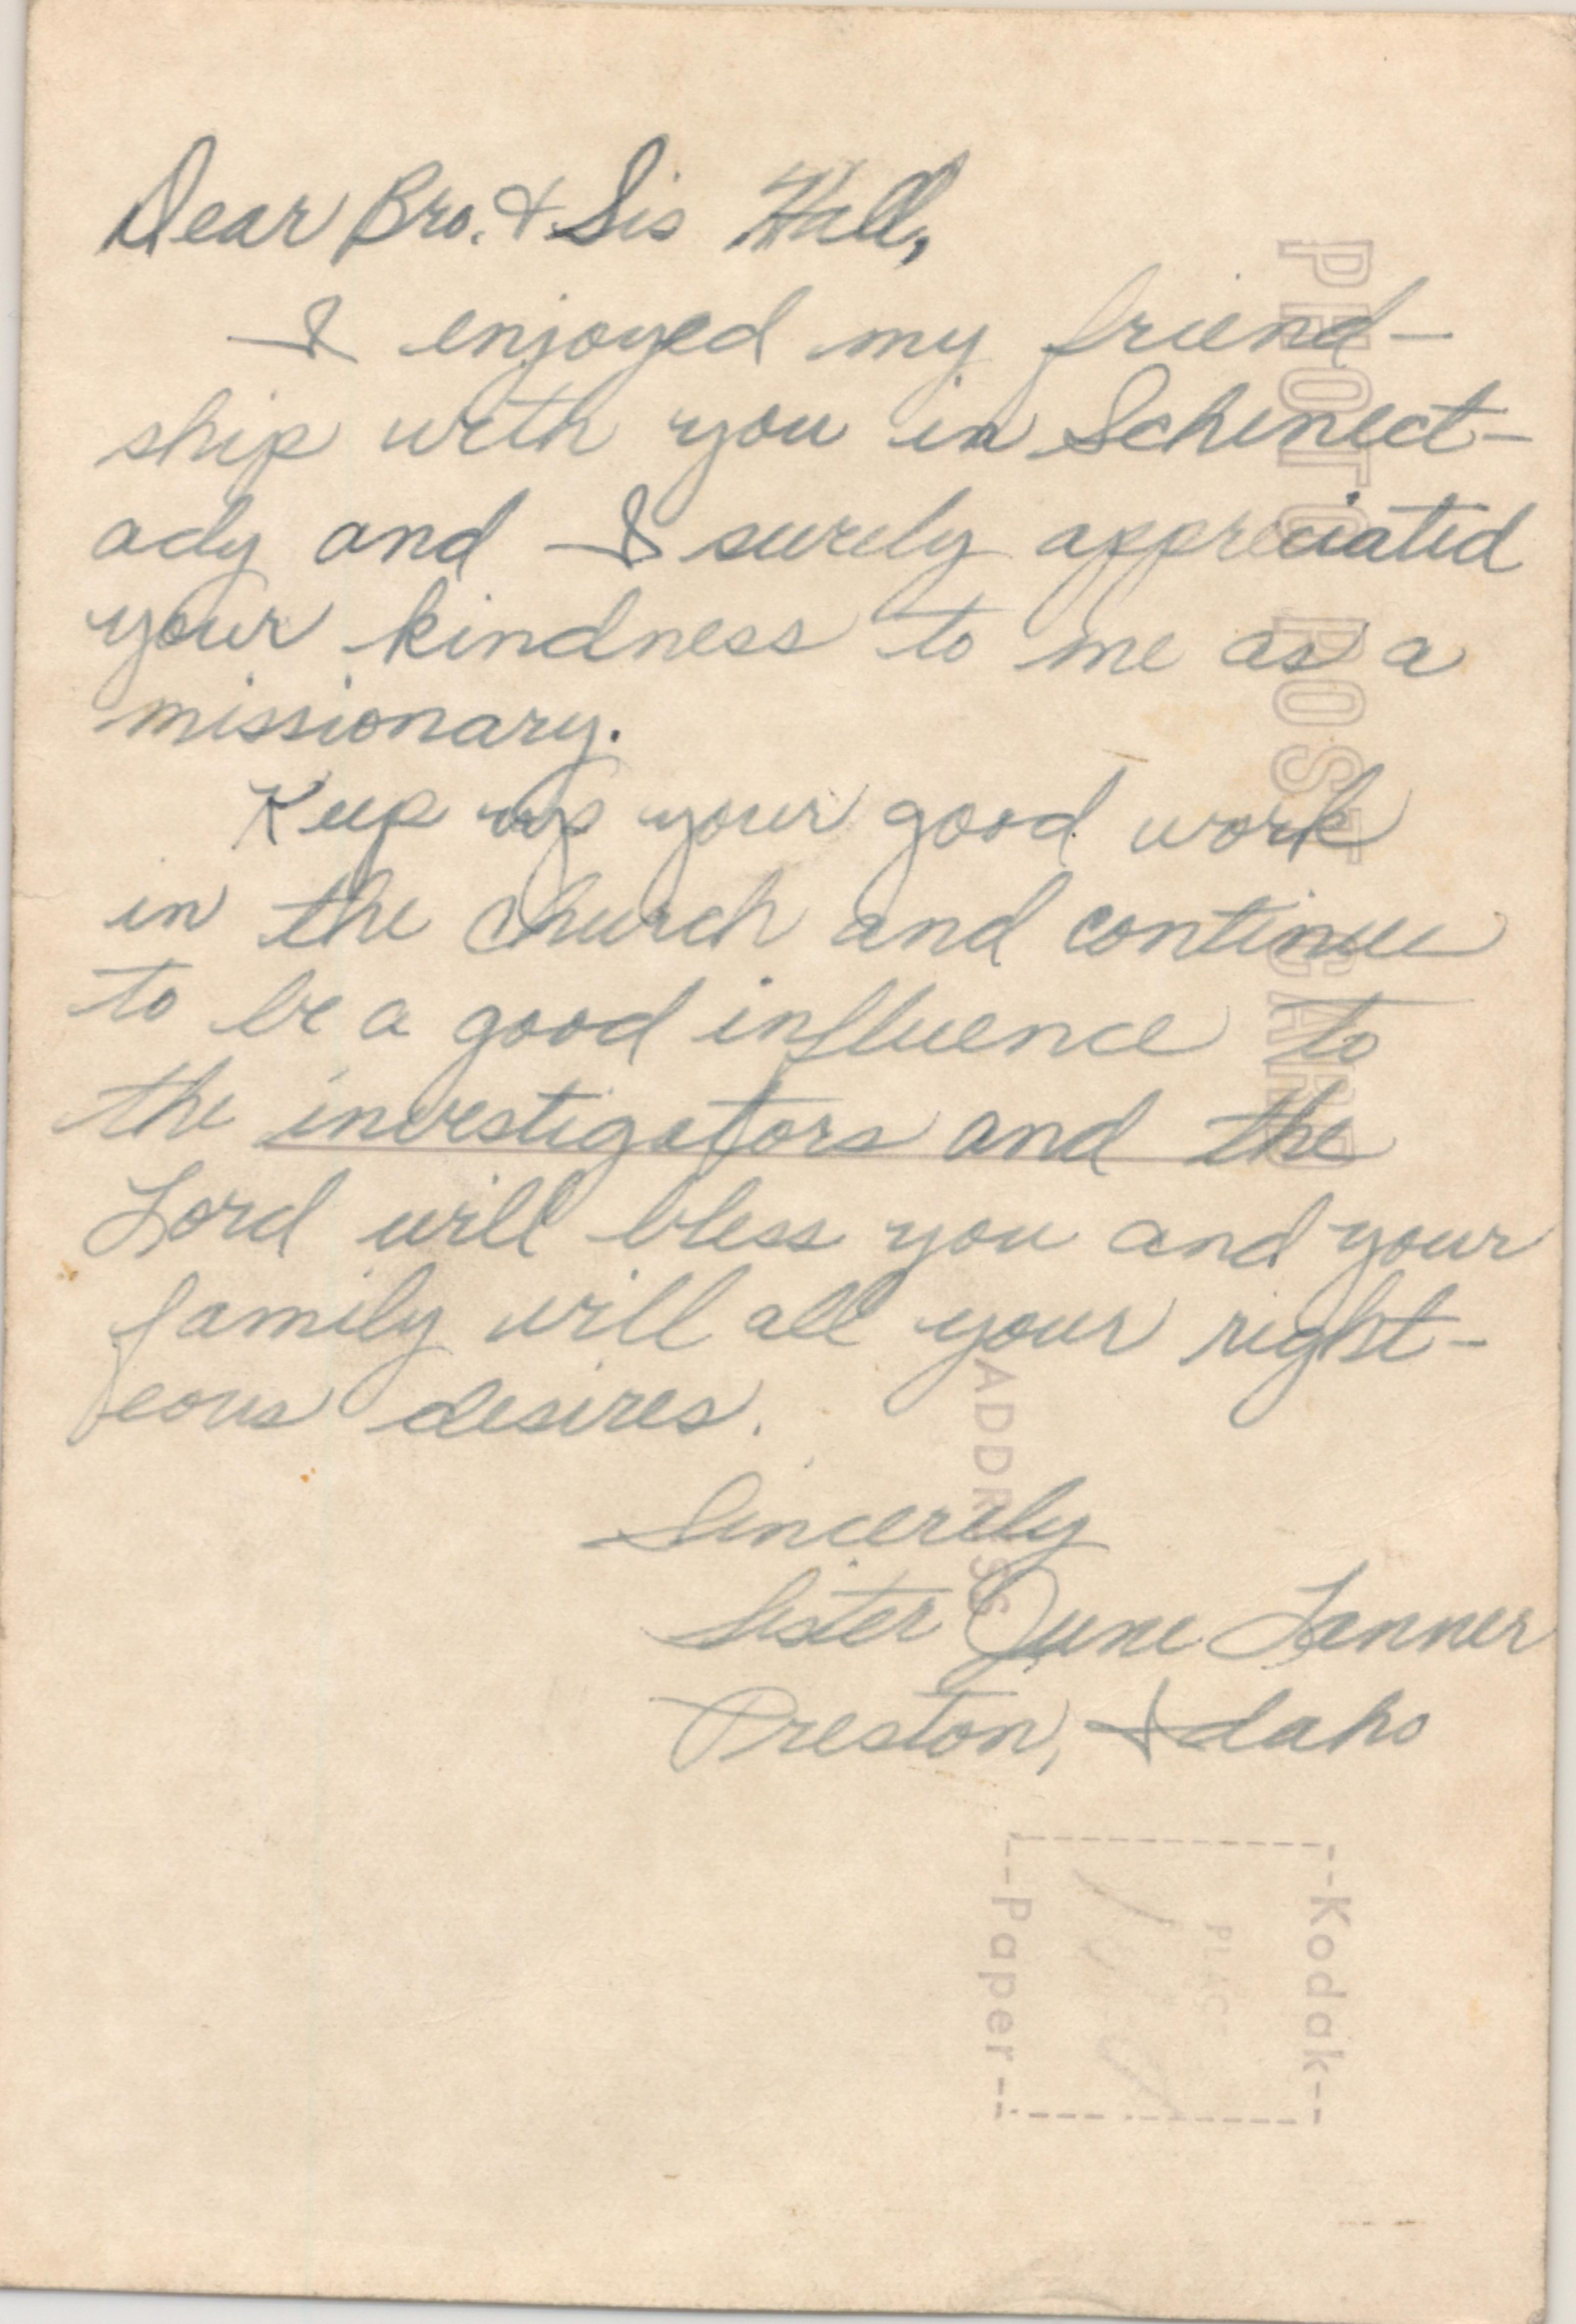 Dear Bro. & Sis Hall,
I enjoyed my friend-
ship with you in Schenect-
ady and I surely appreciated
your kindness to me as a
missionary.
Keep up your good work
in the church and continue
to be a good influence to
the investigators and the
Lord will bless you and your
family will all your right-
eous desires.
Sincerely
Sister June Tanner
Preston, Idaho
PHOTO POST CARD
ADDRESS
Kodak
PLACE
Paper